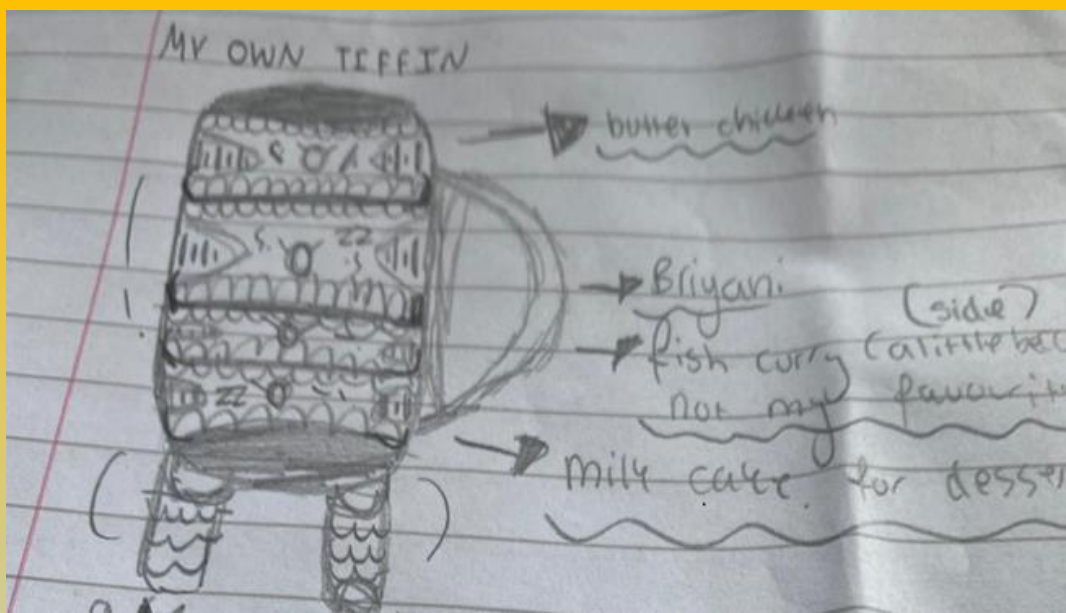 MY OWN TIFFIN
butter chicken
Briyani
(side)
fish curry (a little bec
not my favourit
milk cake. for desser